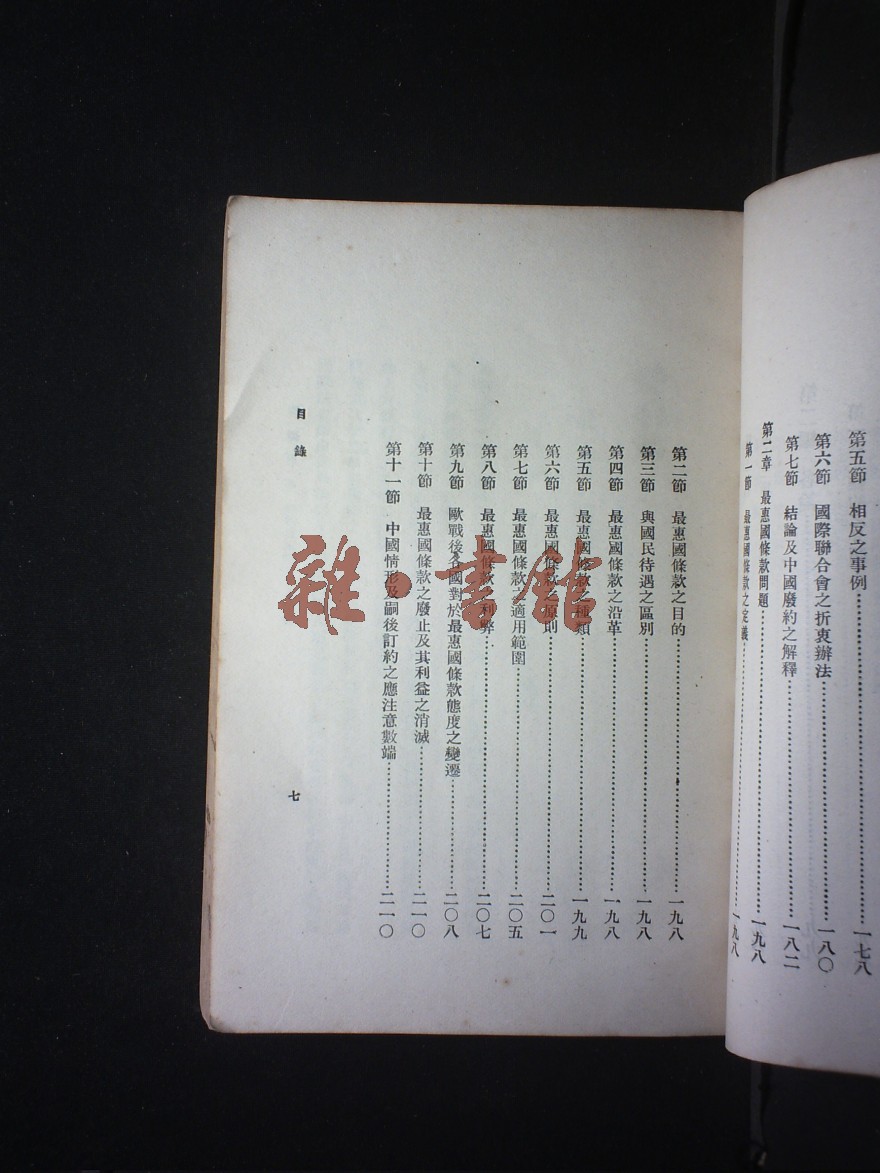 第五節 相反之事例……一七八
第六節 國際聯合會之折衷辦法……一八〇
第七節 結論及中國廢約之解釋……一八二
第二章 最惠國條款問題……一九八
第一節 最惠國條款之定義……一九八
第二節 最惠國條款之目的……一九八
第三節 與國民待遇之區別……一九八
第四節 最惠國條款之沿革……一九八
第五節 最惠國條款之種類……一九九
第六節 最惠國條款之原則……二〇一
第七節 最惠國條款之適用範圍……二〇五
第八節 最惠國條款之利弊……二〇七
第九節 歐戰後各國對於最惠國條款態度之變遷……二〇八
第十節 最惠國條款之廢止及其利益之消滅……二一〇
第十一節 中國情形及嗣後訂約之應注意數端……二一〇
目錄
七
雜·書館